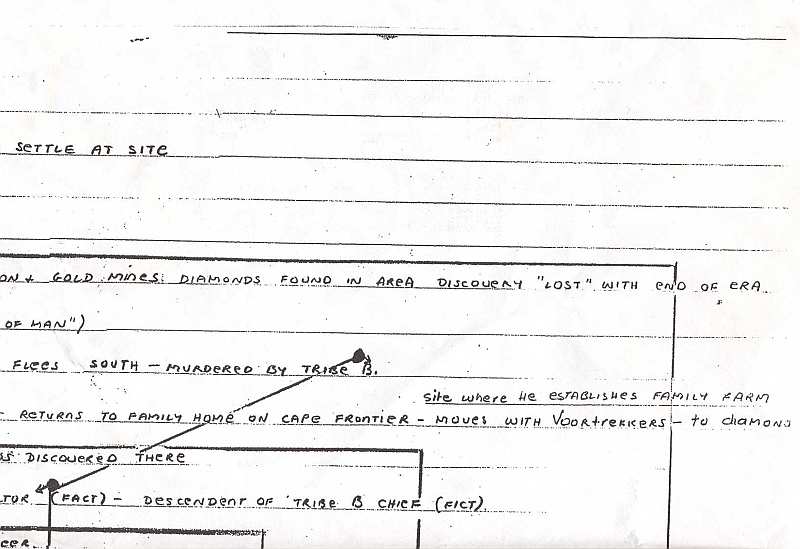 SETTLE AT SITE
ON + GOLD MINES: DIAMONDS FOUND IN AREA DISCOVERY "LOST" WITH END OF ERA.
OF MAN")
FLEES SOUTH - MURDERED BY TRIBE B.
SITE WHERE HE ESTABLISHES FAMILY FARM
- RETURNS TO FAMILY HOME ON CAPE FRONTIER - MOVES WITH VOORTREKKERS - TO DIAMOND
DISCOVERED THERE
TOR - (FACT) - DESCENDENT OF TRIBE B CHIEF (FICT).
EER